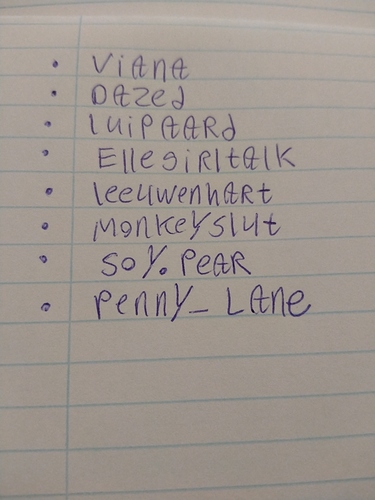 • Viana
• Dazed
• luipaard
• Ellegirltalk
• leeuwenhart
• Monkeyslut
• soy.pear
• penny_Lane